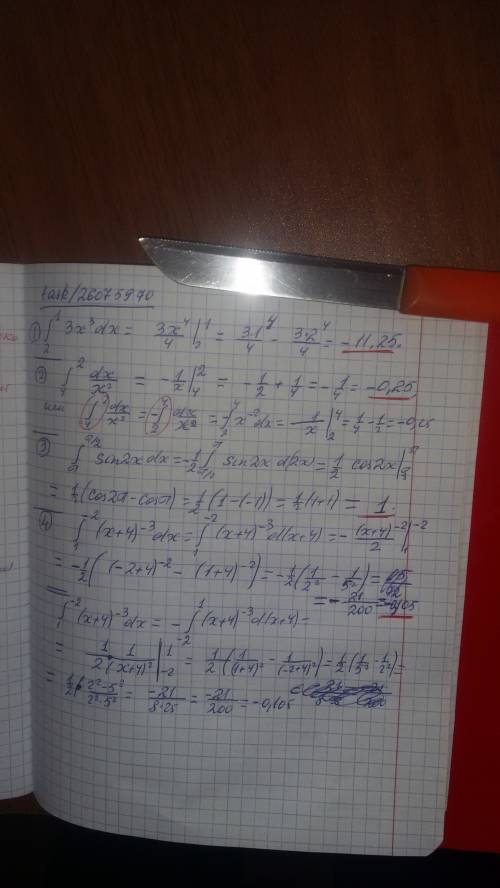 task/26075970
① ∫₂¹ 3x³dx = 3x⁴/4 |₂¹ = 3·1⁴/4 - 3·2⁴/4 = -11,25.
② ∫₄² dx/x² = -1/x |₄² = -1/2 + 1/4 = -1/4 = -0,25
или ∫₄² dx/x² = -∫₂⁴ dx/x² = -∫₂⁴ x⁻²dx = 1/x |₂⁴ = 1/4 - 1/2 = -0,25
③ sin2x dx = -1/2 ∫ sin2x d2x = 1/2 cos2x |
= 1/2 (cos2π - cosπ) = 1/2 (1-(-1)) = 1/2 (1+1) = 1.
④ ∫₁⁻² (x+4)⁻³dx = ∫₁⁻² (x+4)⁻³d(x+4) = -(x+4)⁻²/2 |₁⁻²
= -1/2 ((-2+4)⁻² - (1+4)⁻²) = -1/2 (1/2² - 1/5²) =
= -21/200 =
∫₁⁻² (x+4)⁻³dx = -∫₋₂¹ (x+4)⁻³d(x+4) =
= 1/2 · 1/(x+4)² |₋₂¹ = 1/2 (1/(1+4)² - 1/(-2+4)²) = 1/2 (1/5² - 1/2²) =
= 1/2 · 2²-5²/2²·5² = -21/8·25 = -21/200 = -0,105